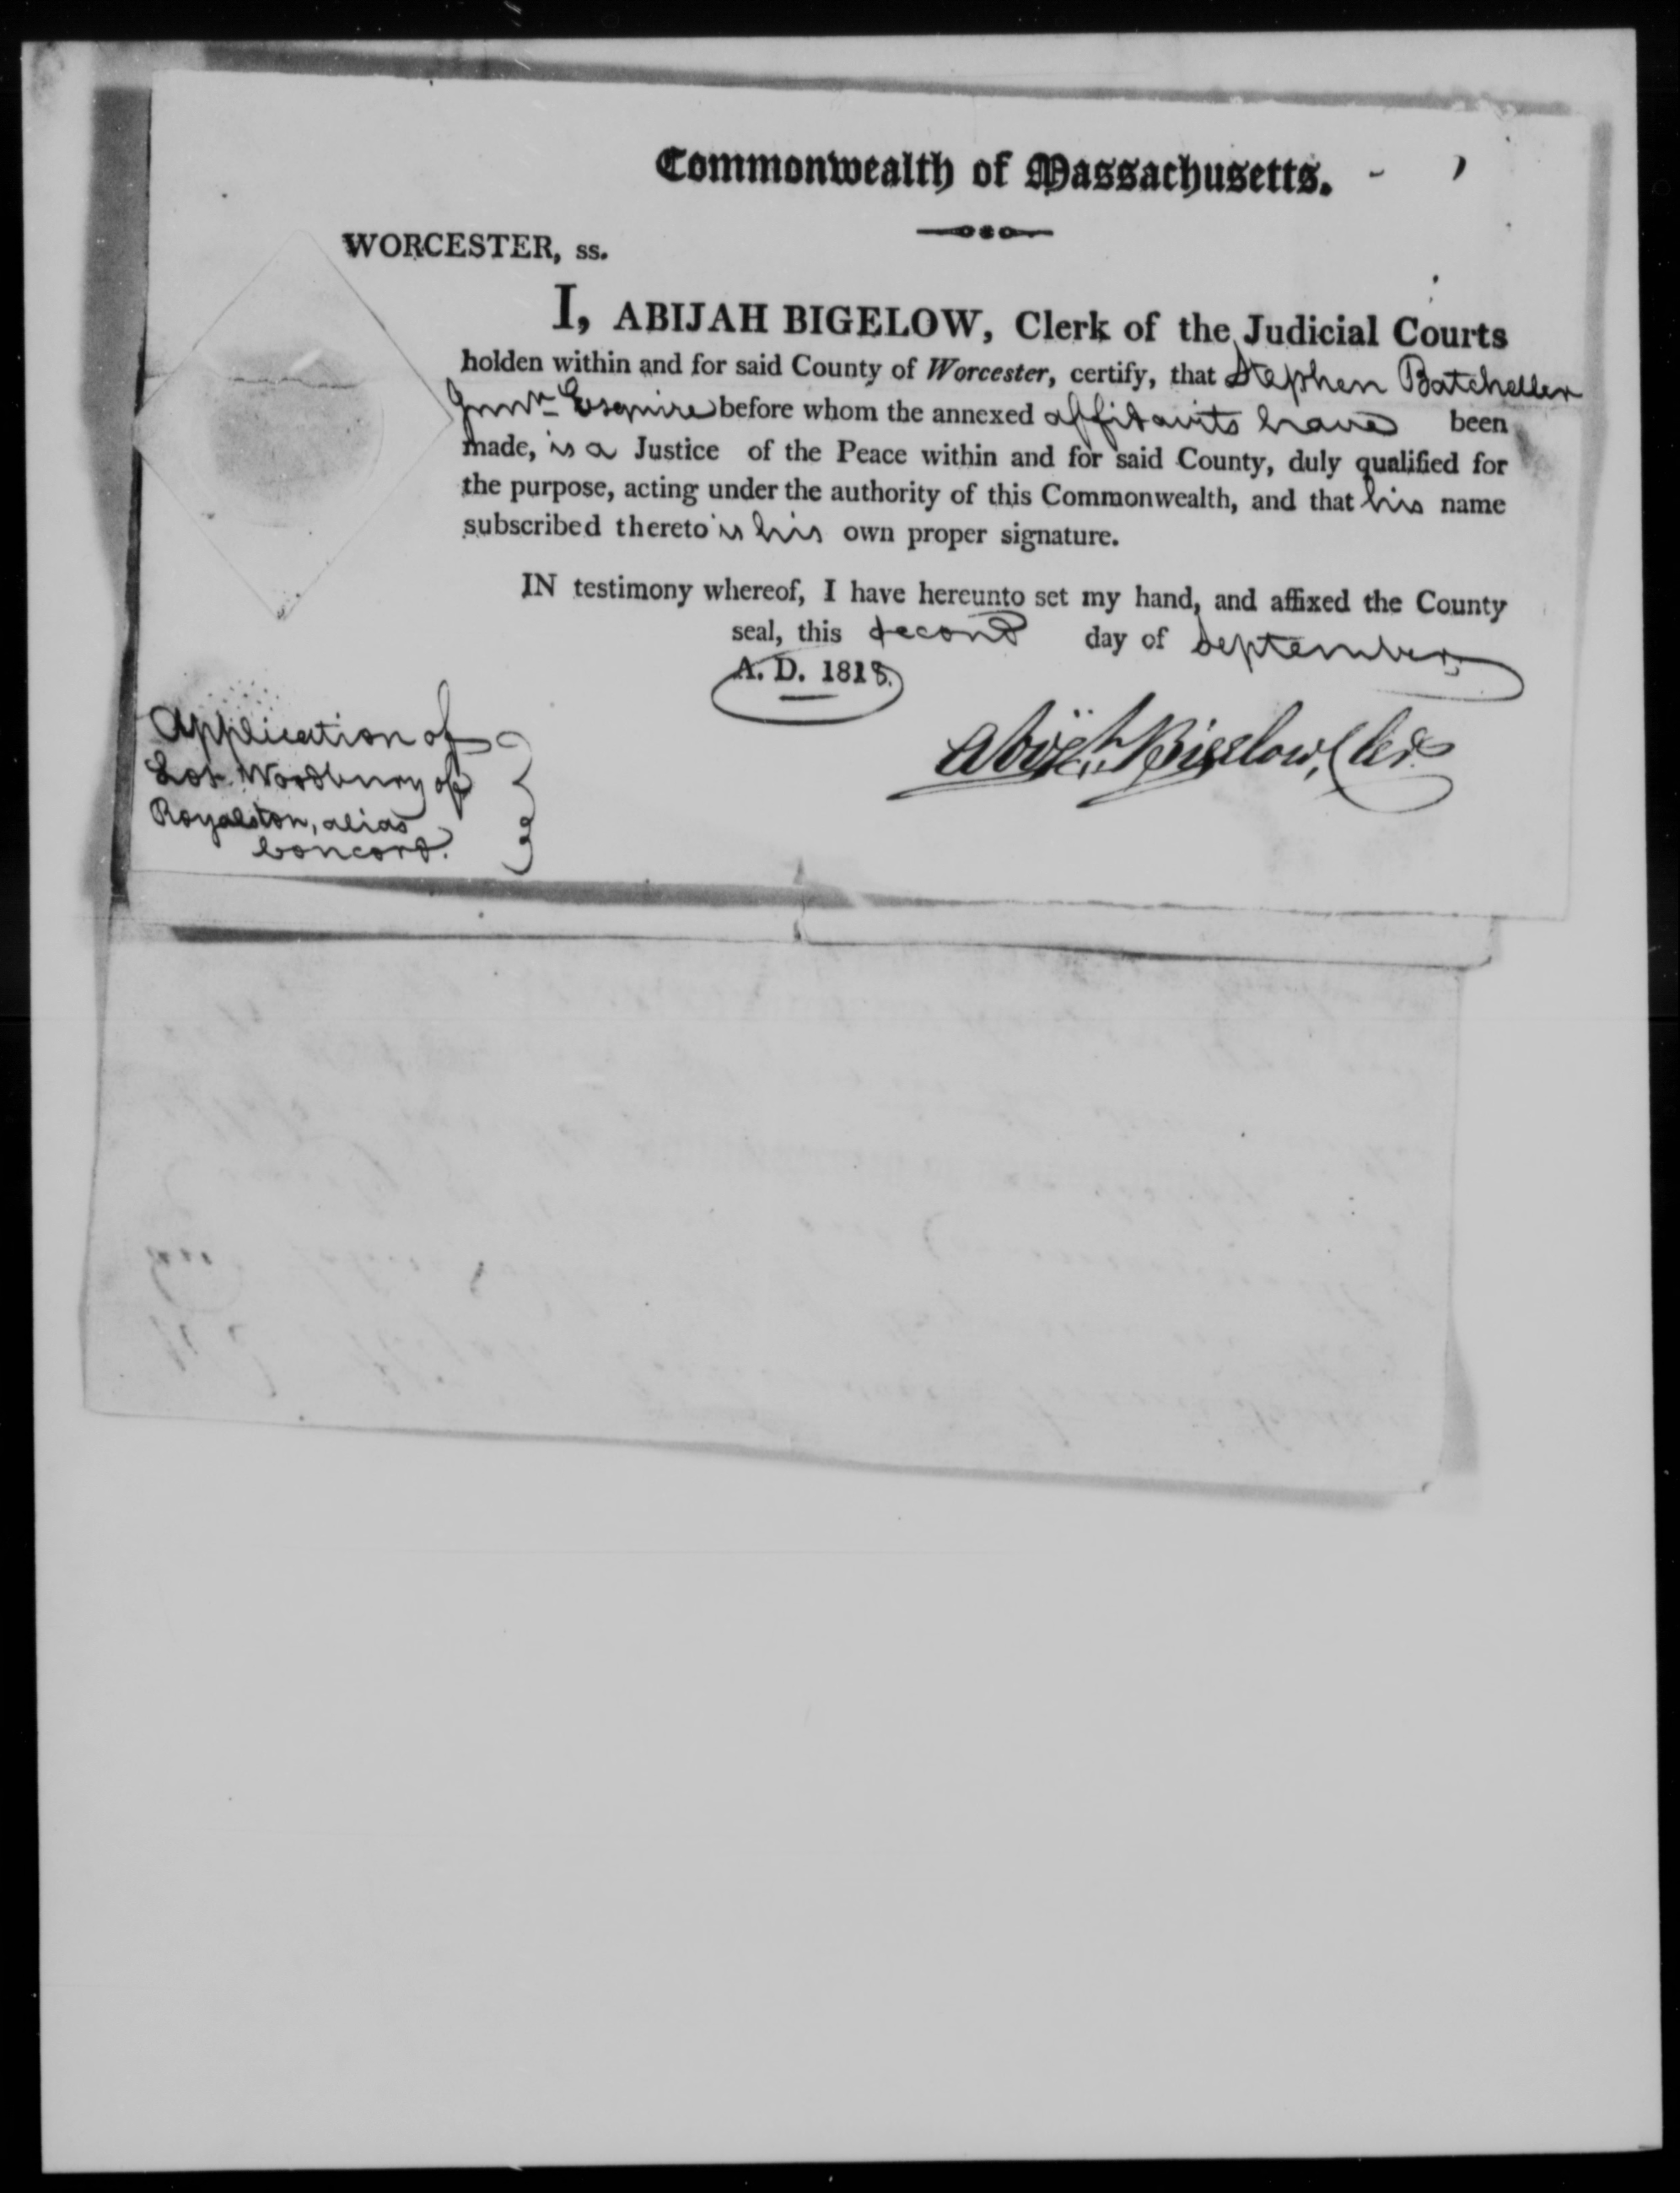 Commonwealth of Massachusetts.
WORCESTER, ss.
I, ABIJAH BIGELOW, Clerk of the Judicial Courts
holden within and for said County of Worcester, certify, that Stephen Batcheller
Junr. Esquire before whom the annexed affidavits have been
made, is a Justice of the Peace within and for said County, duly qualified for
the purpose, acting under the authority of this Commonwealth, and that his name
subscribed thereto is his own proper signature.
IN testimony whereof, I have hereunto set my hand, and affixed the County
seal, this second day of September,
A. D. 1818.
Abijah Bigelow, Clerk
Application of
Lot Woodbury of
Royalston, alias
Concord.